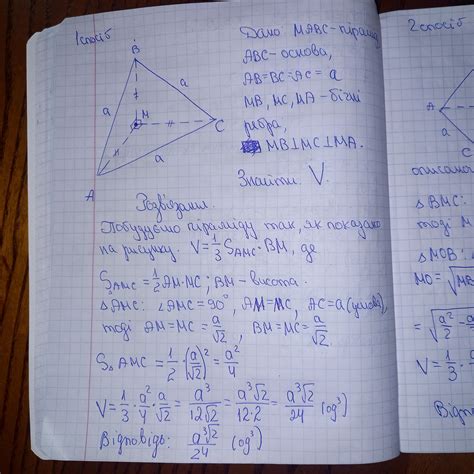 1 спосіб
B
a
a
M
C
a
A
Дано: MABC-піраміда
ABC-основа,
AB=BC=AC=a
MB, MC, MA-бічні
ребра,
MB⊥MC⊥MA.
Знайти: V.
Розв'язання.
Побудуємо піраміду так, як показано
на рисунку. V=1/3 S_AMC · BM, де
S_AMC=1/2 AM·MC; BM-висота.
△AMC: ∠AMC=90°, AM=MC, AC=a (умова),
тоді AM=MC=a/√2, BM=MC=a/√2
S△AMC=1/2·(a/√2)²=a²/4
V=1/3·a²/4·a/√2=a³/12√2=a³√2/12·2=a³√2/24 (од³)
Відповідь: a³√2/24 (од³)
2 спосіб
A
C
описано
△BMC:
тоді
△MOB:
MO=√MB
=√a²/2-
V=1/3·
Відп